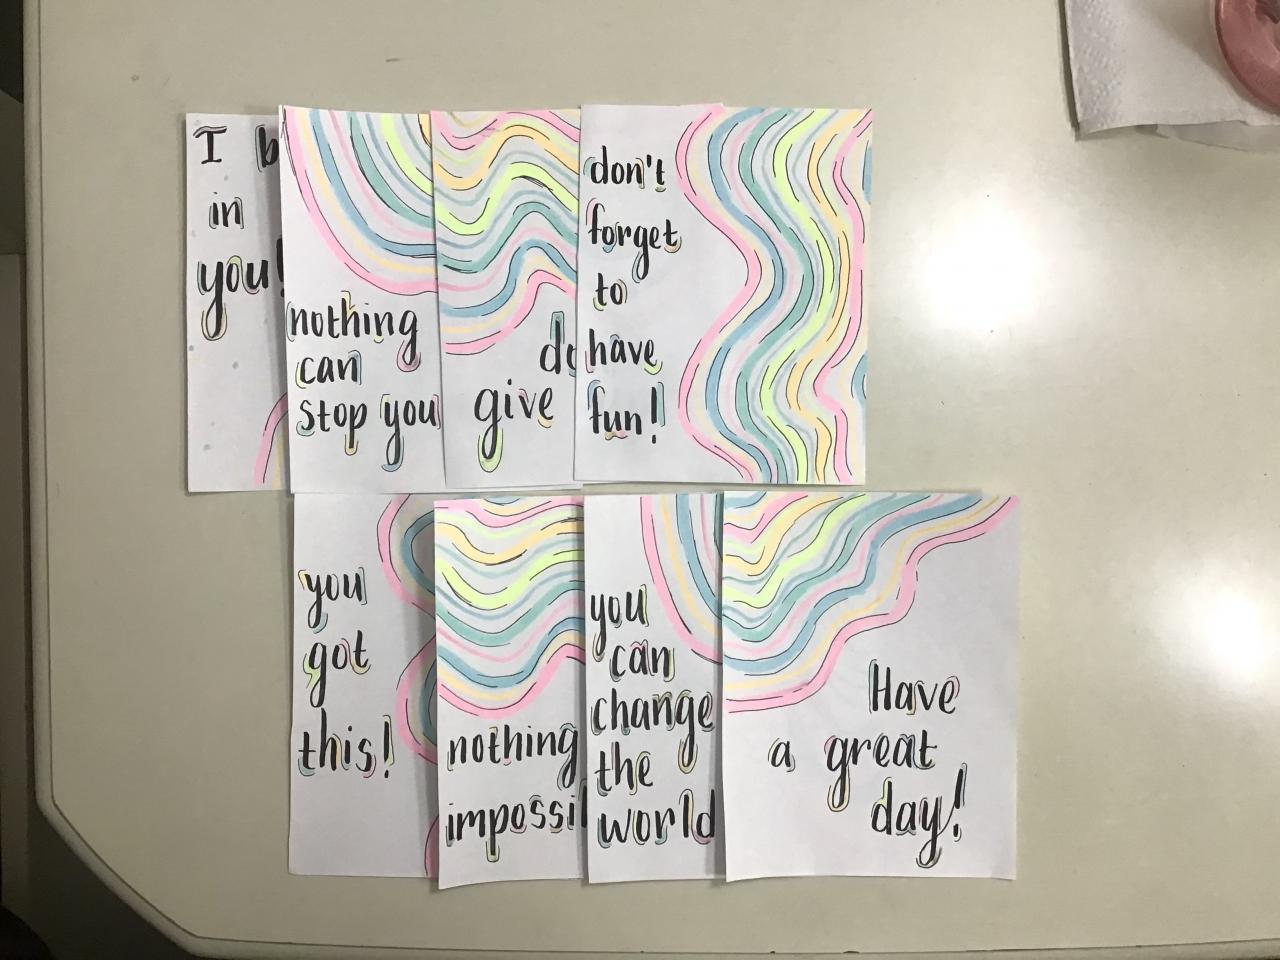 I b
in
you!
nothing
can
stop you
do
give
don't
forget
to
have
fun!
you
got
this!
nothing
impossi
you
can
change
the
world
Have
a great
day!